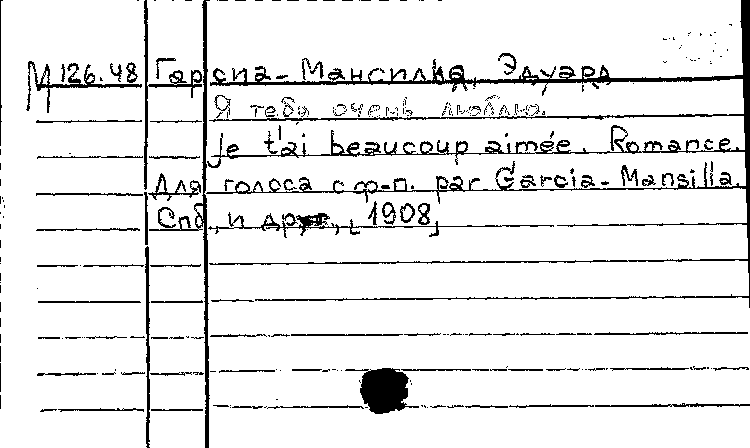 М 126.48 Гарсиа-Мансилья, Эдуард
Я тебя очень люблю.
Je t'ai beaucoup aimée. Romance.
Для голоса с ф-п. par Garcia-Mansilla.
Спб, и др., [1908]